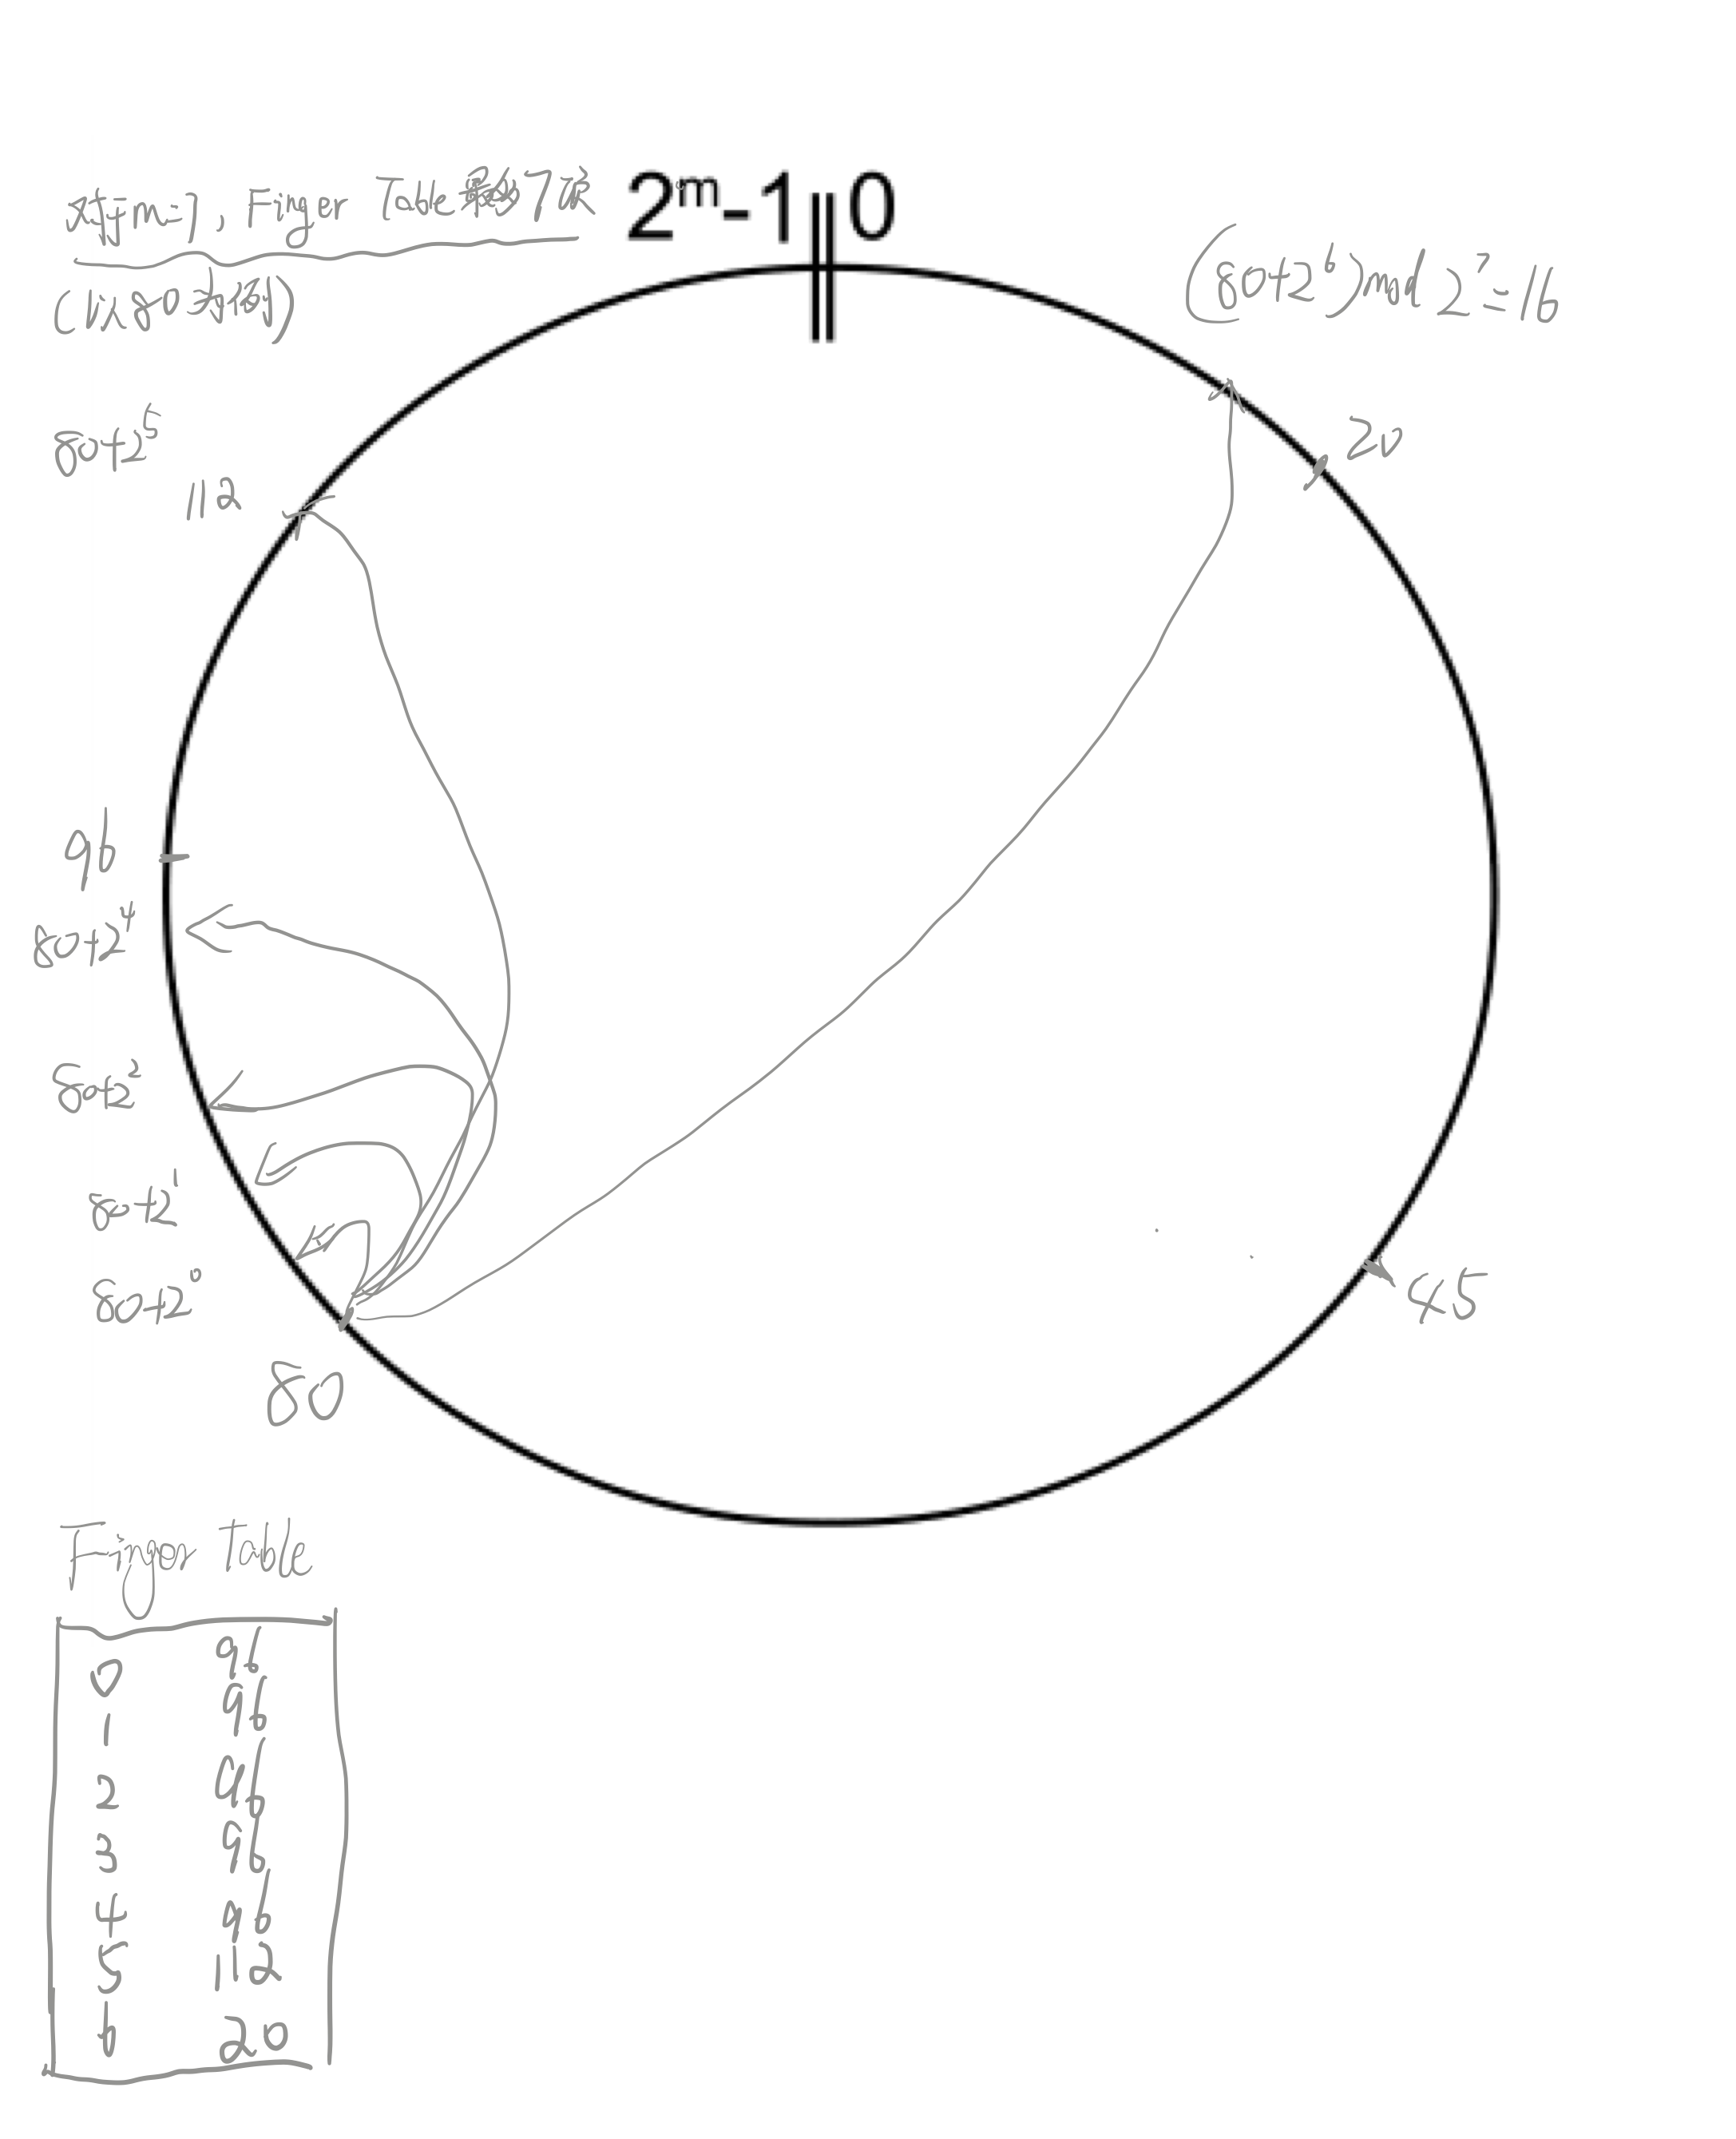 2ᵐ-1 0
对于m=7, Finger Table最多7跳
(以80为例)
(80+2⁶)mod 2⁷=16
80+2⁵
20
112
96
80+2⁴
80+2²
80+2¹
80+2⁰
45
80
Finger Table
0 96
1 96
2 96
3 96
4 96
5 112
6 20